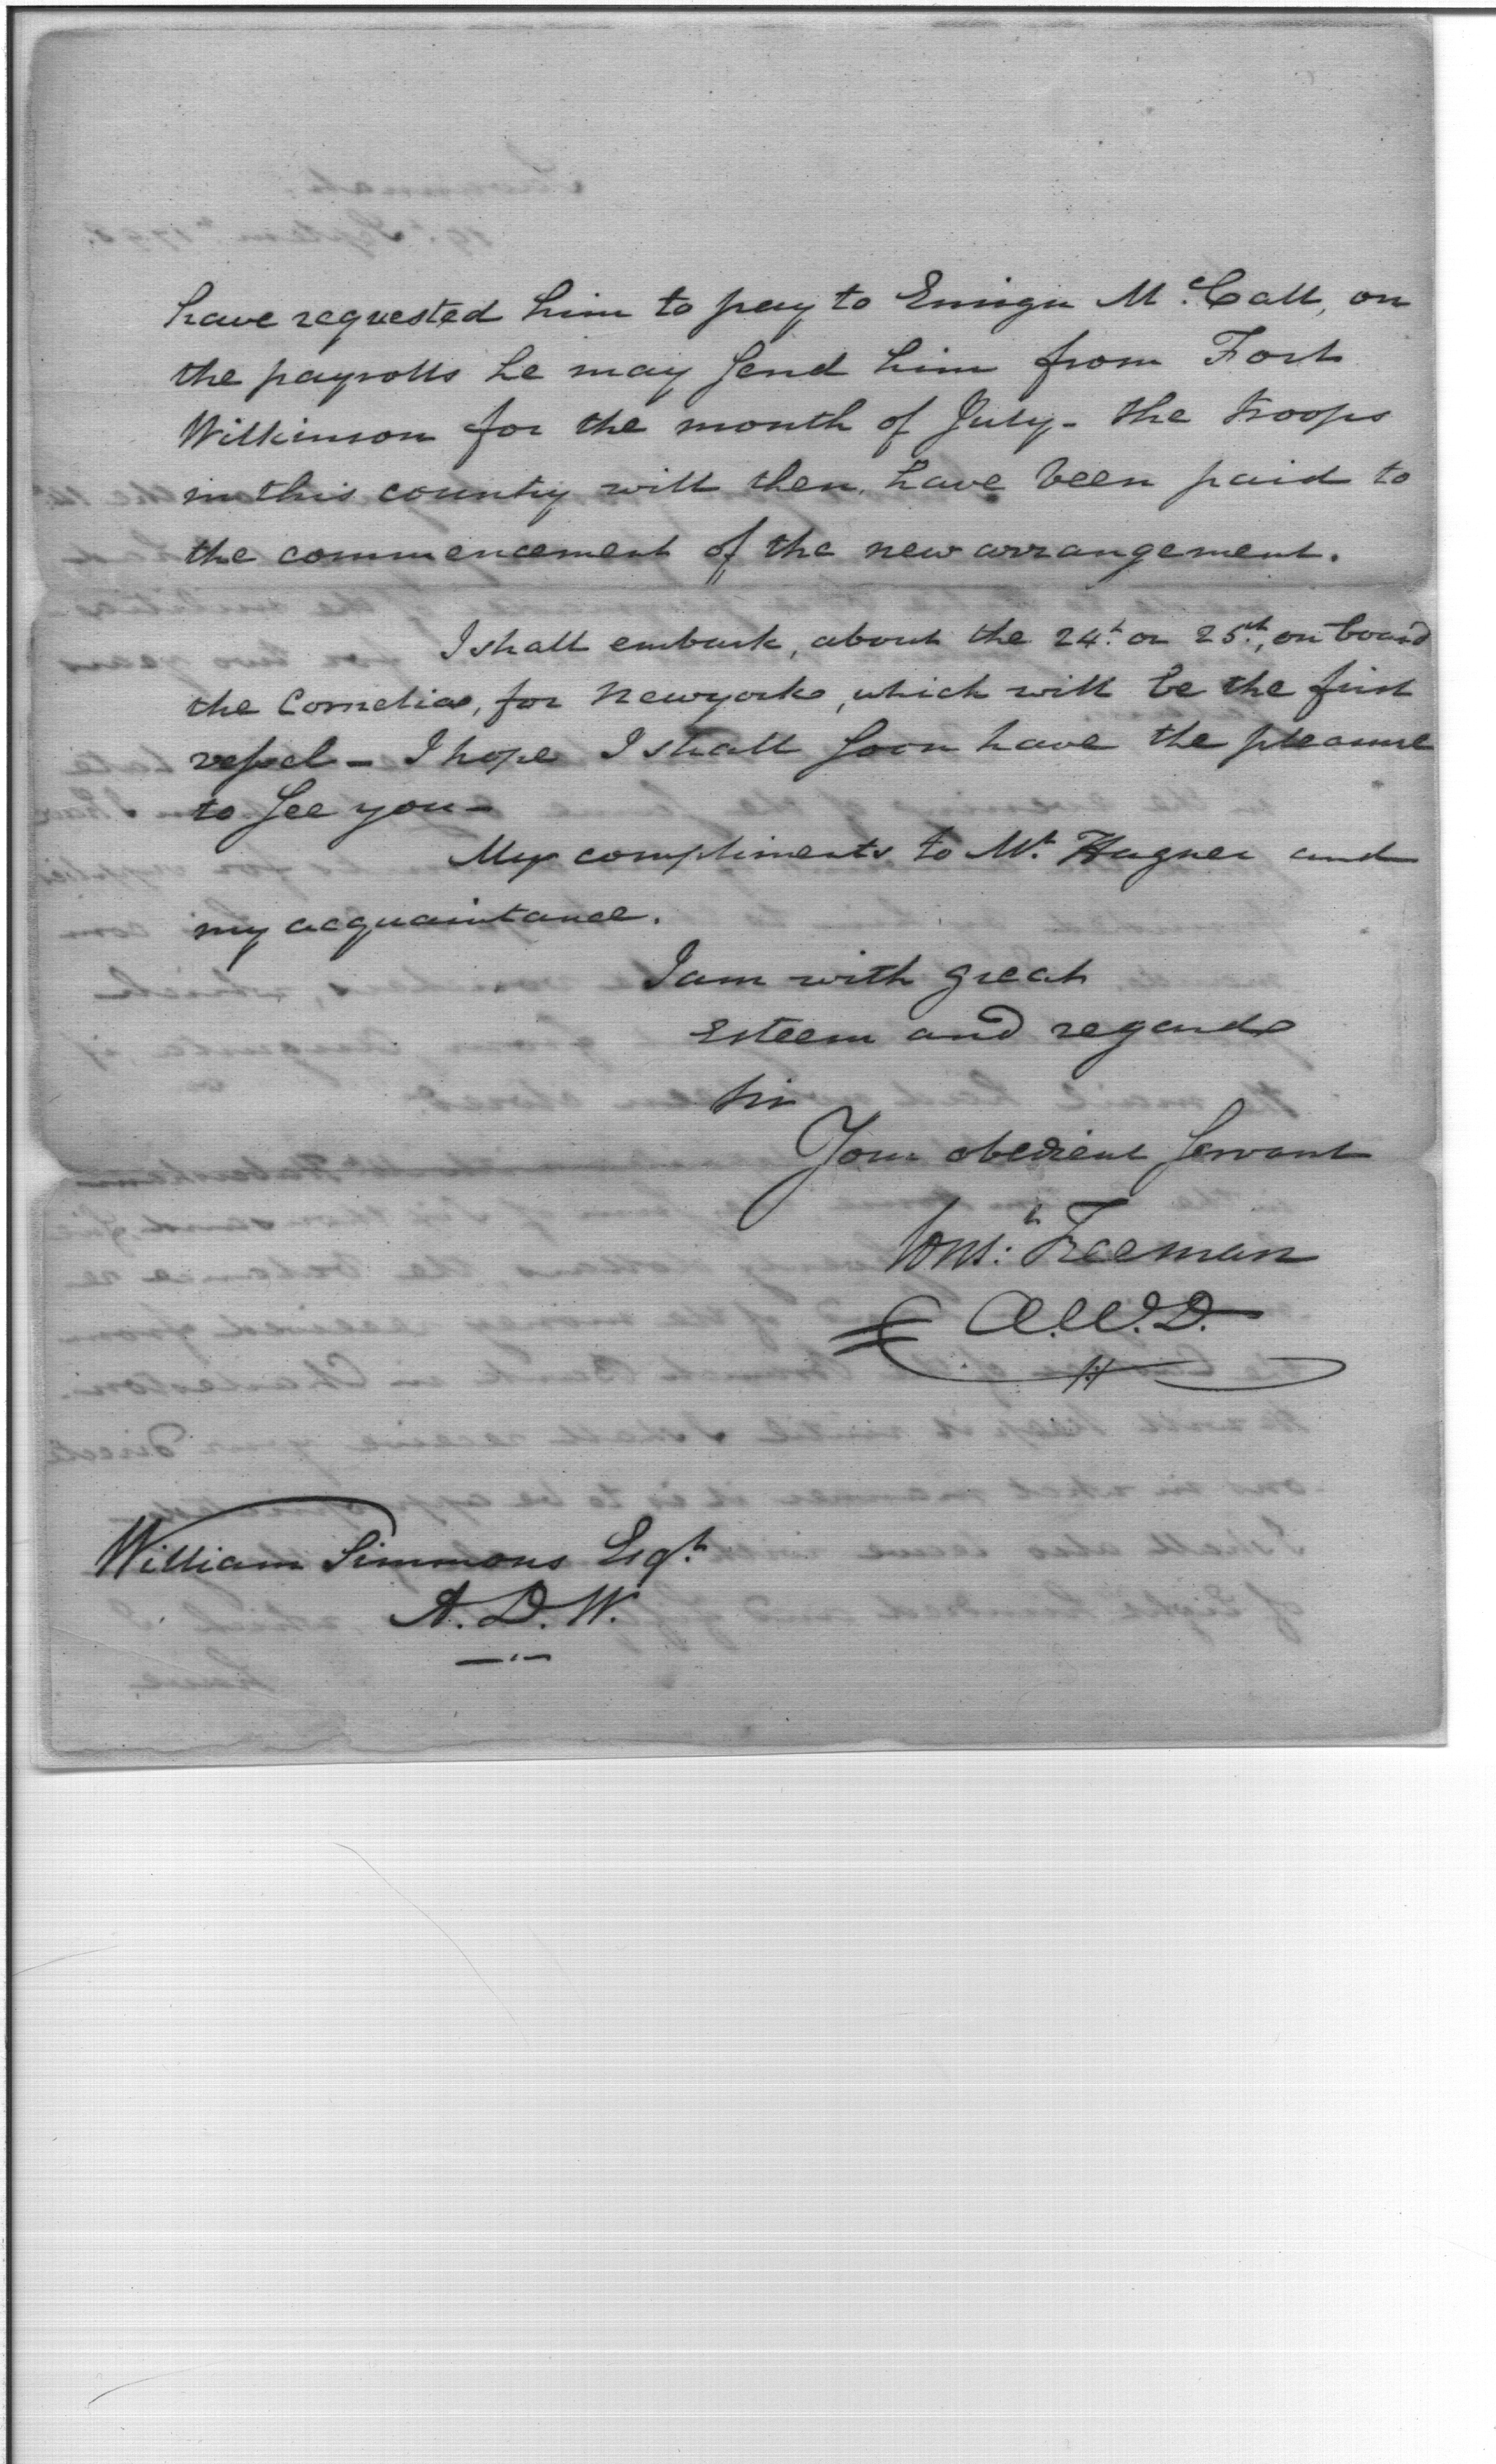 have requested him to pay to Ensign McCall, on
the payrolls he may send him from Fort
Wilkinson for the month of July - the troops
in this country will then have been paid to
the commencement of the new arrangement.
I shall embark, about the 24th or 25th, on board
the Cornelia, for Newyork, which will be the first
vessel - I hope I shall soon have the pleasure
to see you -
My compliments to Mr. Hagner and
my acquaintance.
I am with great
esteem and regard
Sir
Your obedient Servant
Const: Freeman
A.W.D.
William Simmons Esqr.
A.D.W.